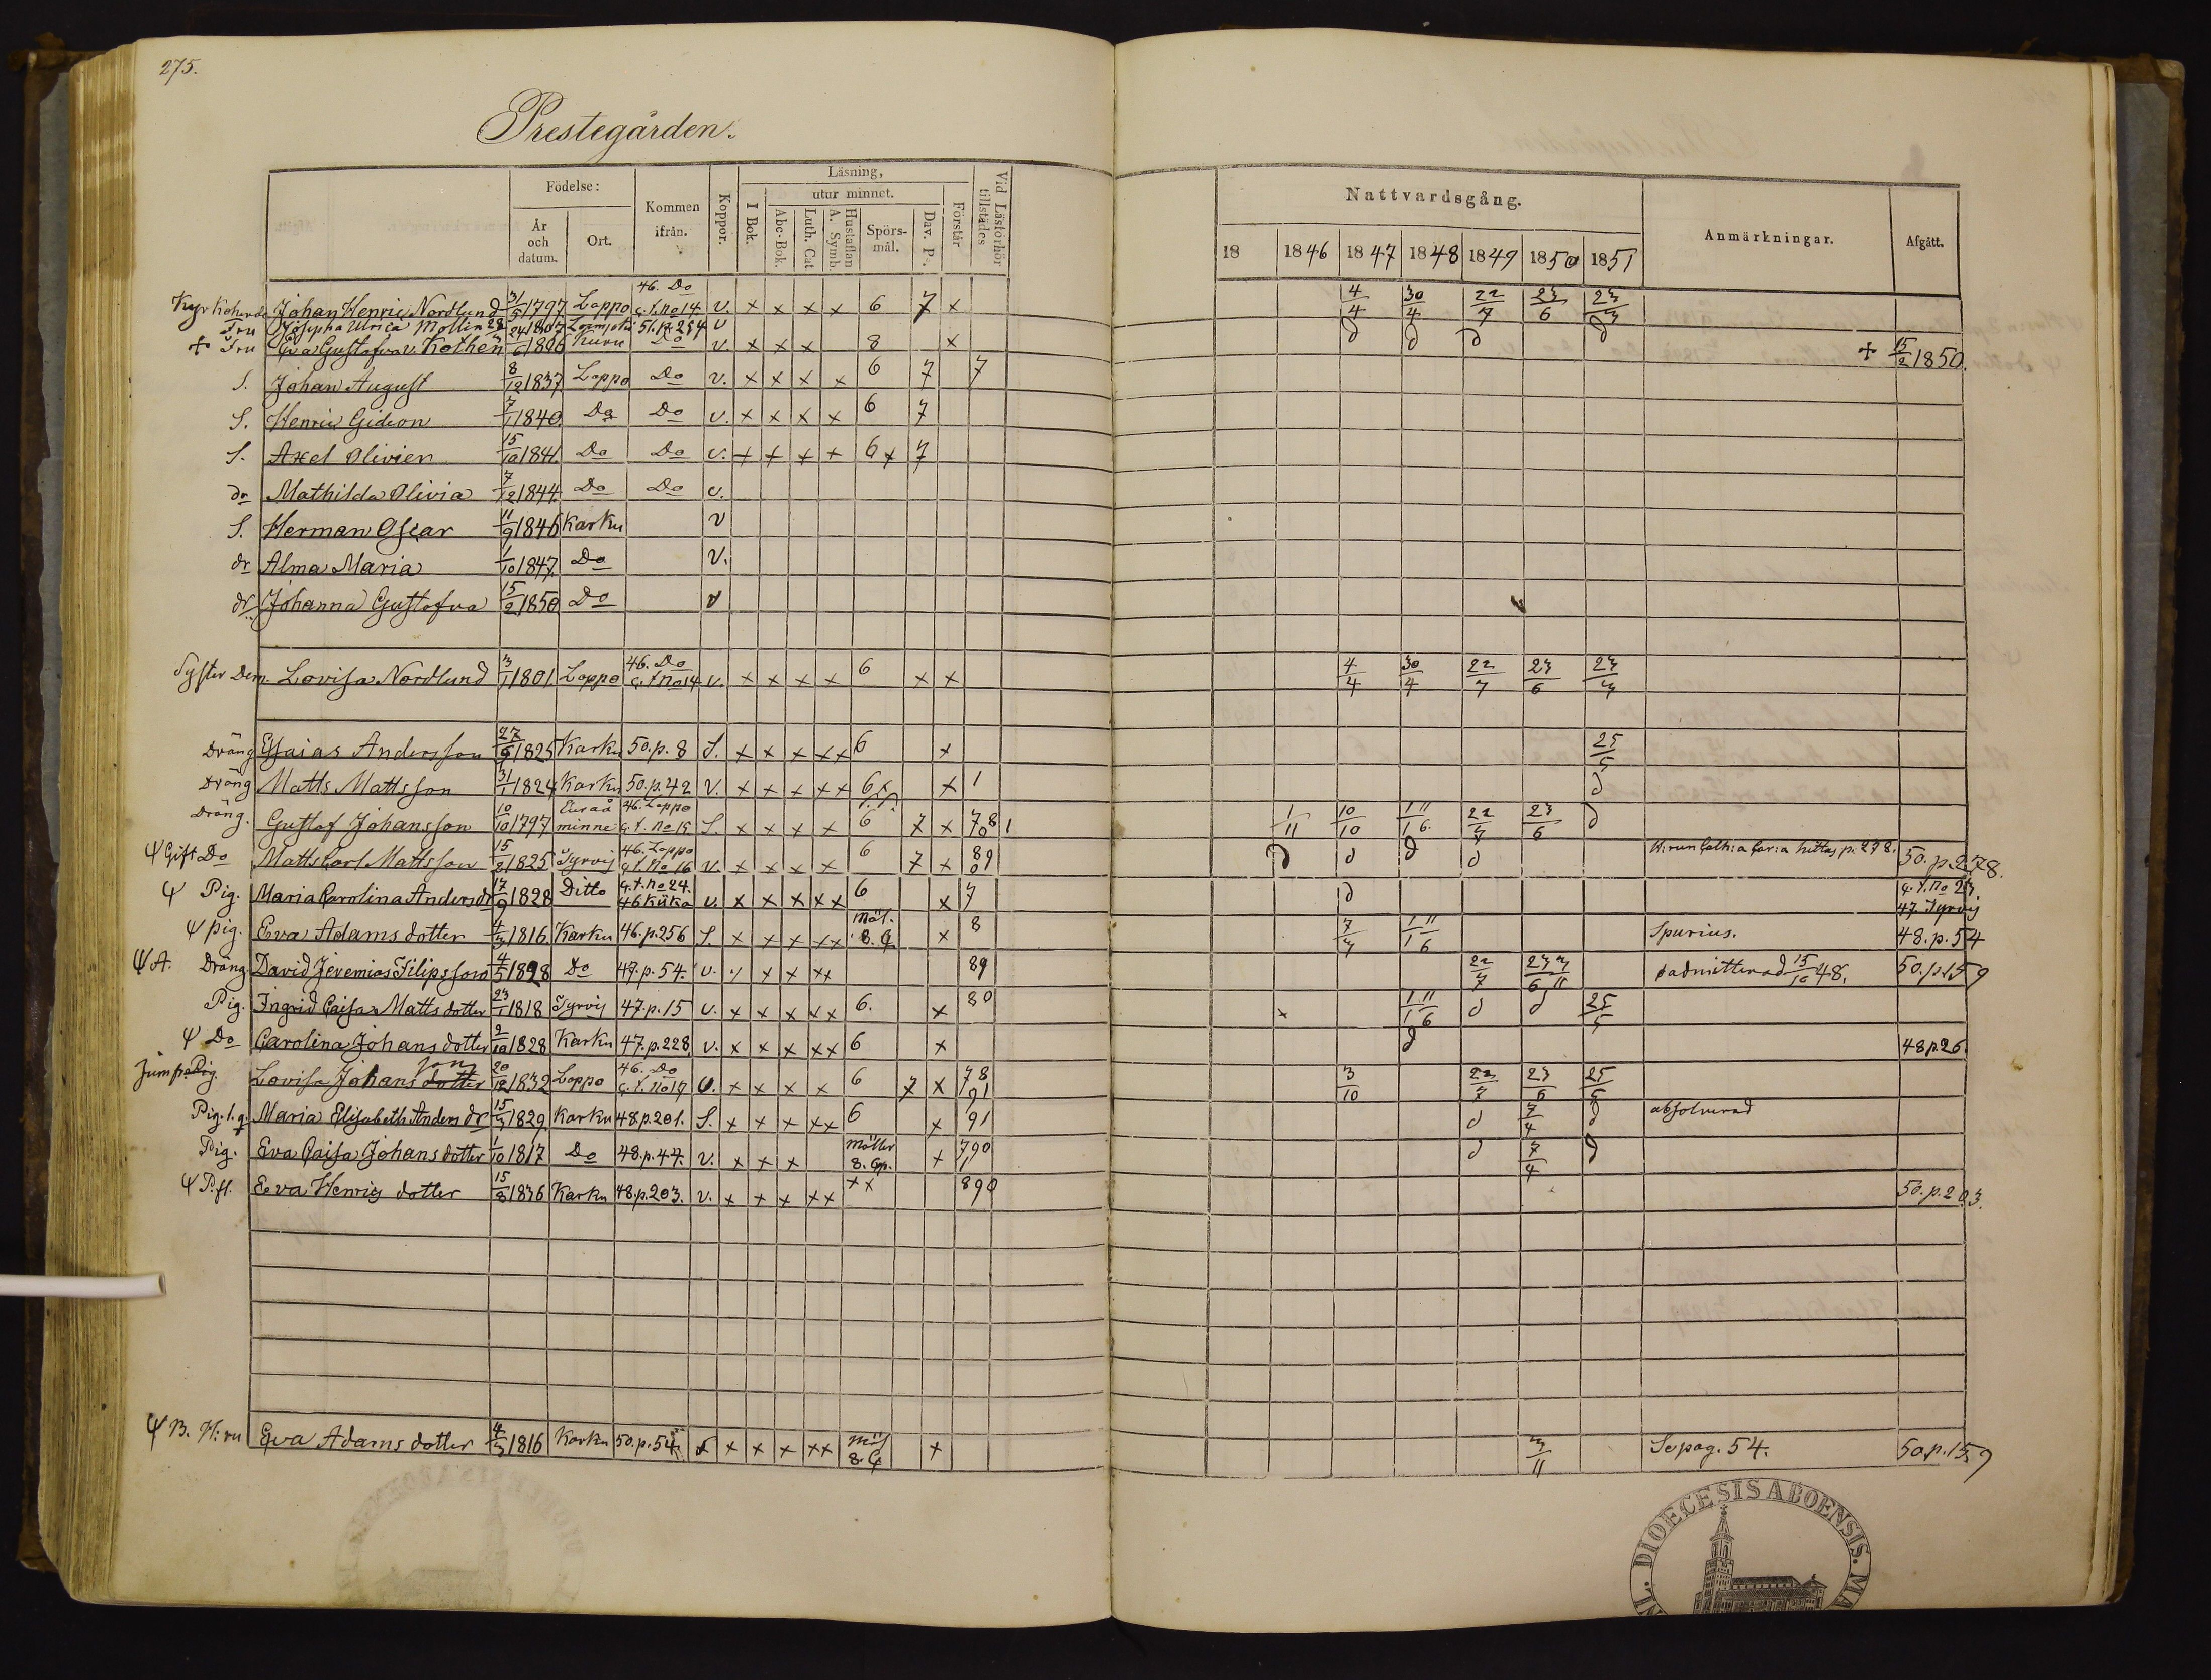 275.
Prestegården.
Födelse: Kommen ifrån. Koppor. Läsning, Vid Läsförhör tillstädes
År och datum. Ort. I Bok. utur minnet. Förstår
Abc-Bok. Luth. Cat Hustaflan A. Symb. Spörsmål. Dav. Ps.
Nattvardsgång. Anmärkningar. Afgått.
18 1846 1847 1848 1849 1850 1851
Kyrkoherde Johan Henric Nordlund 31/5 1797 Lappo 46. Do q.t. No 14 v. x x x x 6 7 x 4/4 30/4 22/7 23/6
Fru Josepha Ulrica Mollin 1807 51. p. 254 v
+ Fru Eva Gustafva v. Kothen 1806 Kuru Do v. x x x 8 x + 15/2 1850.
S. Johan August 8/12 1837 Lappo Do v. x x x x 6 7 7
S. Henric Gideon 7/1 1840. Do Do v. x x x x 6 7
S. Axel Olivier 15/10 1841. Do Do v. x x x x 6 x 7
dr Mathilda Olivia 7/12 1844. Do Do v.
S. Herman Oscar 11/9 1846 Karku v
dr Alma Maria 1/10 1847. Do v.
dr. Johanna Gustafva 15/2 1850 Do v
Syster Dem. Lovisa Nordlund 3/1 1801 Lappo 46. Do q.t. No 14 v. x x x x 6 x x 4/4 30/4 22/7 23/6
Dräng Esaias Andersson 27/6 1825 Karku 50. p. 8 S. x x x x x 6 x 25/5
Dräng Matts Mattsson 31/1 1824 Karku 50. p. 42 v. x x x x x 6 x x 1 d
Dräng. Gustaf Johansson 10/10 1797 Euraåminne 46. Lappo q.t. No 15 S. x x x x 6 7 x 1/11 10/10 22/7 23/6 d
Ψ Gift Do Matts Carl Mattsson 15/2 1825 Tyrvis 46. Lappo q.t. No 16 v. x x x x 6 7 x 89 d d d d H:run Cath:a Car:a hittas p. 278. 50. p. 278.
Ψ Pig. Maria Carolina Andersdr 17/9 1828 Ditto q.t. No 24. 46 Kiika v. x x x x x 6 x 7 d q.t. No 23 47. Tyrvis
Ψ pig. Eva Adamsdotter 4/3 1816 Karku 46. p. 256 S. x x x x x Mål. 8. x 8 Spurius. 48. p. 54
Ψ A. Dräng. David Jeremias Filipsson 4/5 1828 Do 47. p. 54. v. x x x x 89 22/7 admitterad 15/10 48. 50. p. 159
Pig. Ingrid Caisa Mattsdotter 23/1 1818 Tyrvis 47. p. 15 v. x x x x x 6. x 80 x d d 25/5
Ψ Do Carolina Johansdotter 2/10 1828 Karku 47. p. 228. v. x x x x x 6 x d 48 p. 26.
Jumpr. Pig. Lovisa Johansdotter son 20/12 1832 Lappo 46. Do q.t. No 17 v. x x x x 6 7 x 78 91 3/10 22/7 23/6 25/5
Pig. l.q. Maria Elisabeth Andersdr 15/3 1829. Karku 48. p. 201. S. x x x x x 6 x 91 d 7/4 d absolverad
Pig. Eva Caisa Johansdotter 1/10 1817 Do 48. p. 47. v. x x x x 790 d 7/4 d
Ψ P.fl. Eva Henrics dotter 15/8 1836 Karku 48. p. 203. v. x x x x x x x 890 50. p. 203.
Ψ B. H:ru Eva Adamsdotter 4/3 1816 Karku 50. p. 54. x x x x x 8. x 3/11 Se pag. 54. 50. p. 159
DIOECESIS ABOENSIS.